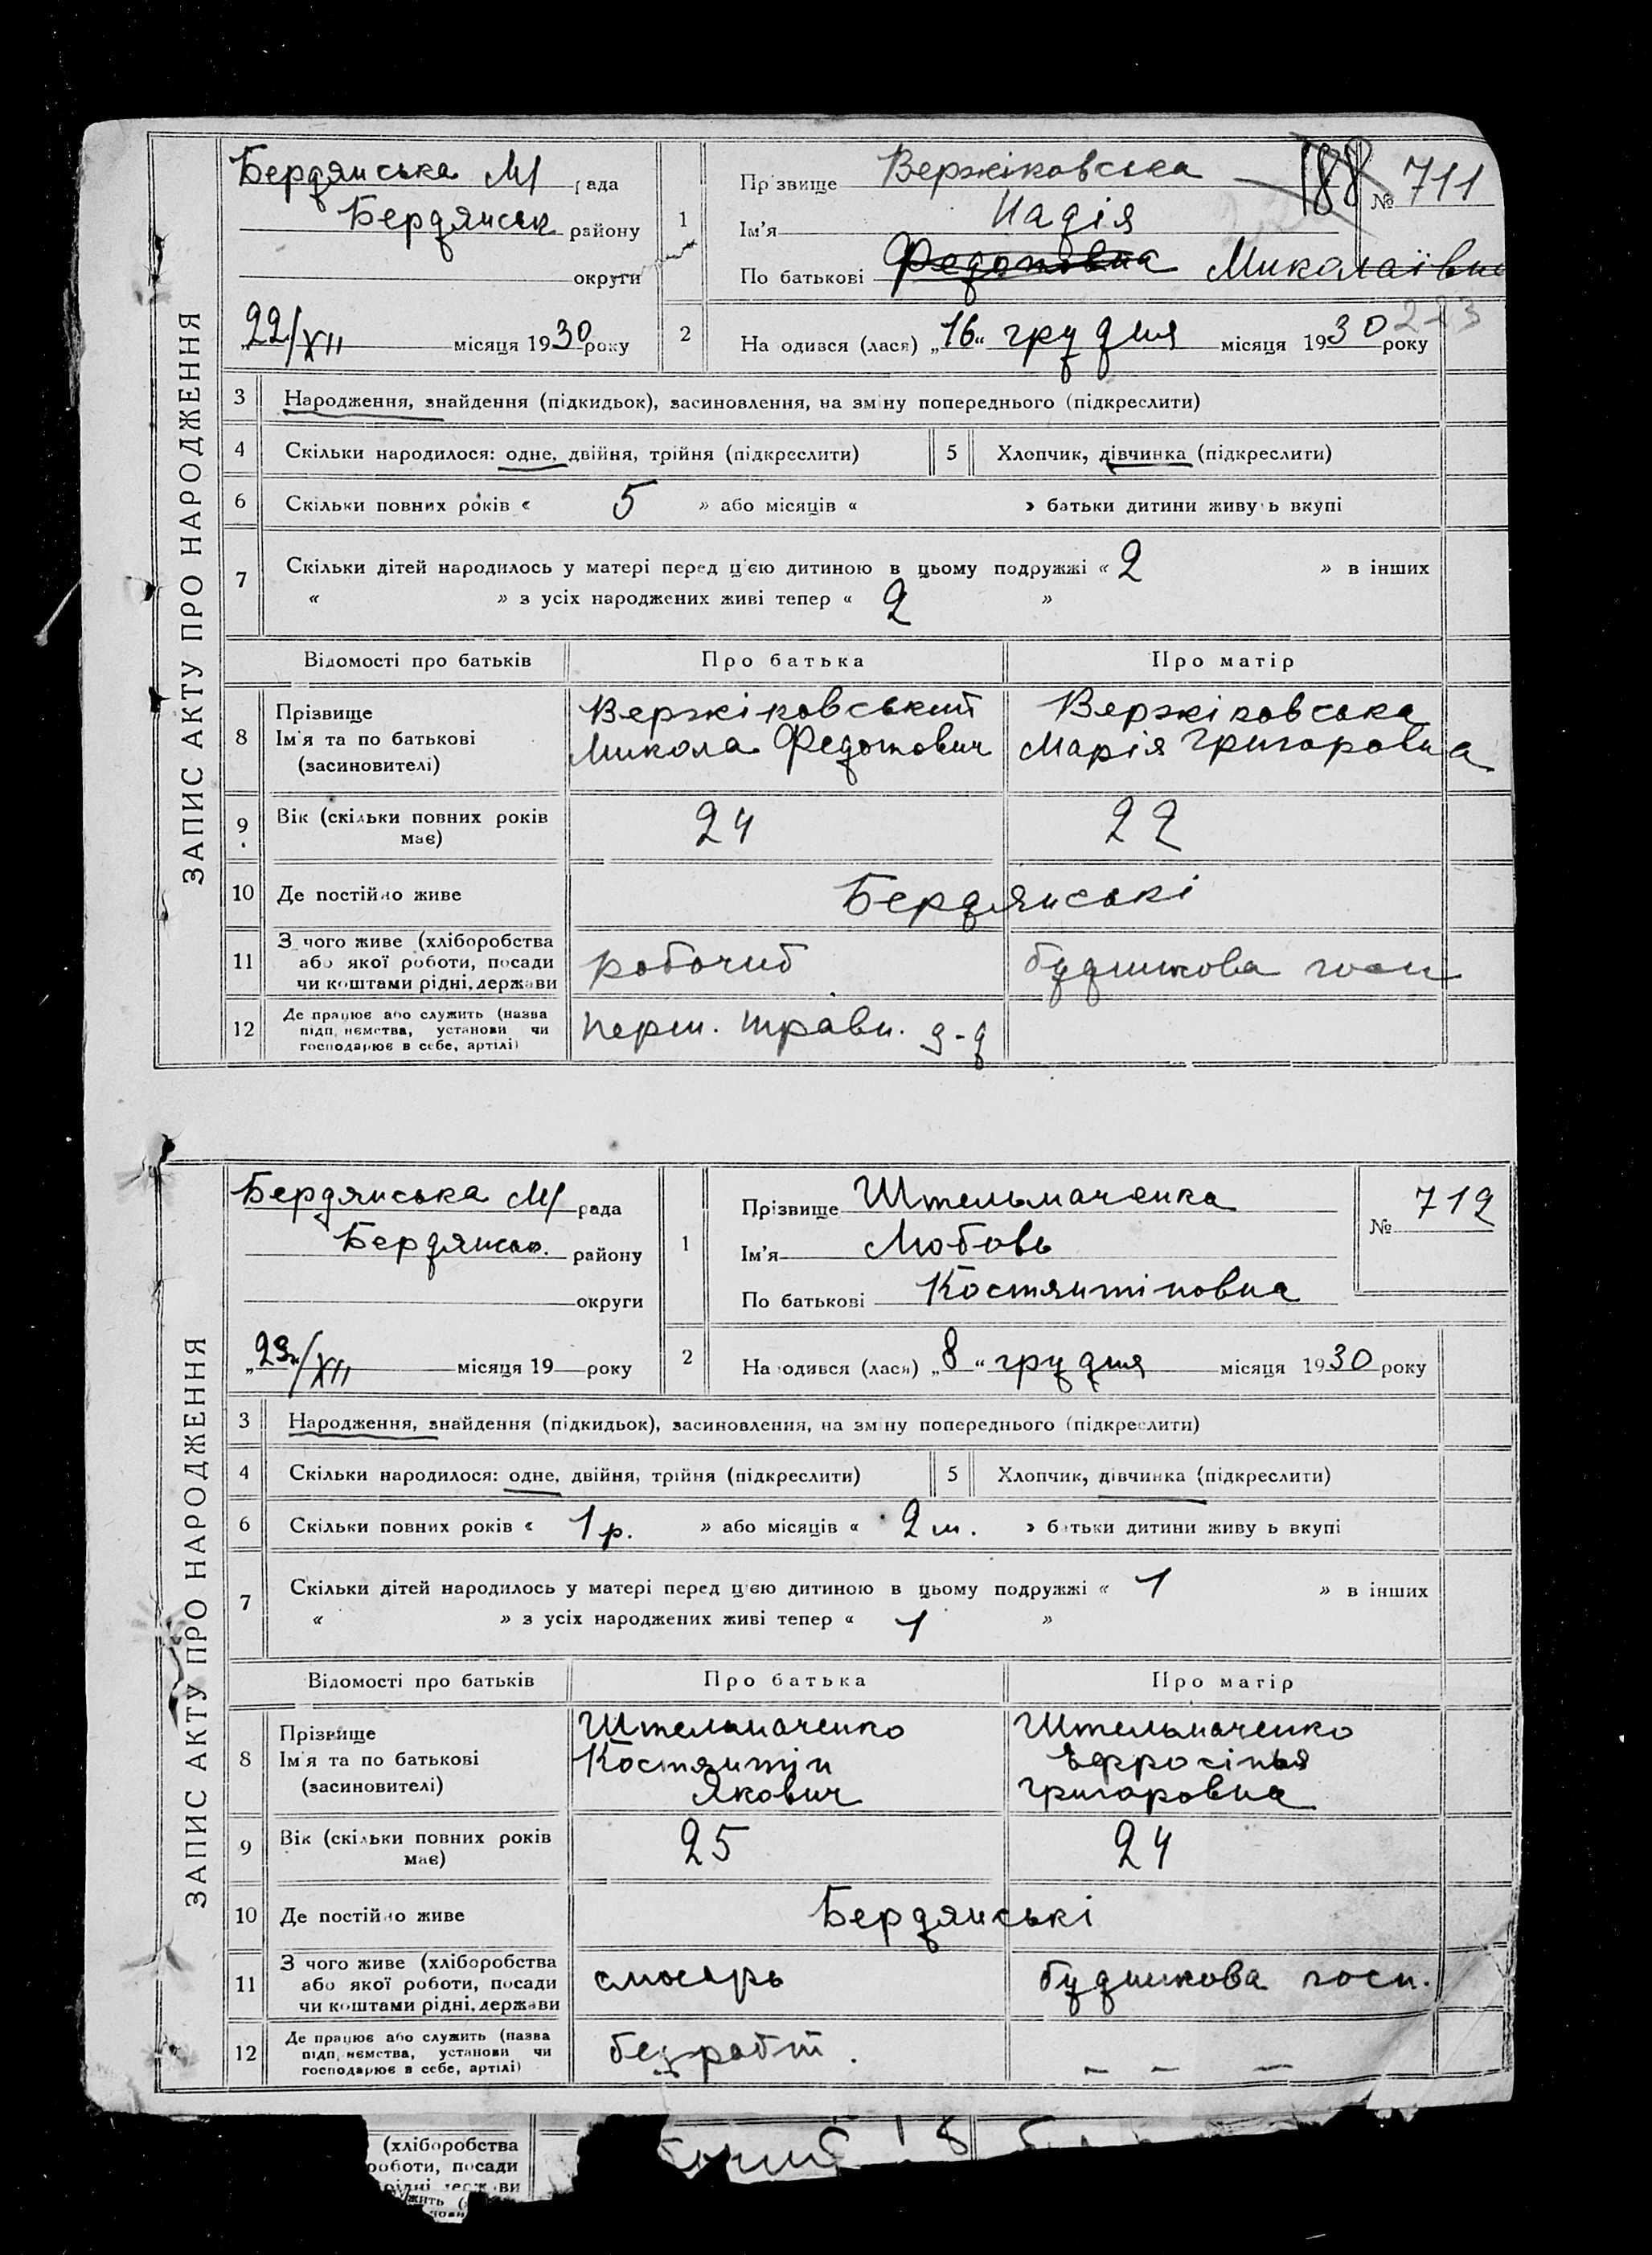 ЗАПИС АКТУ ПРО НАРОДЖЕННЯ
Бердянська М/ рада
Бердянськ району
округи
22/XII місяця 1930 року
1
Прізвище Вержіковська
Ім'я Надія
По батькові Федотовна Миколаївна
188 № 711
2
Народився (лася) „16" грудня місяця 1930 року
223
3 Народження, знайдення (підкидьок), засиновлення, на зміну попереднього (підкреслити)
4 Скільки народилося: одне, двійня, трійня (підкреслити) 5 Хлопчик, дівчинка (підкреслити)
6 Скільки повних років « 5 » або місяців « » батьки дитини живуть вкупі
7 Скільки дітей народилось у матері перед цією дитиною в цьому подружжі « 2 » в інших
« » з усіх народжених живі тепер « 2 »
Відомості про батьків Про батька Про матір
8 Прізвище Ім'я та по батькові (засиновителі)
Вержіковський
Микола Федотович
Вержіковська
Марія Григоровна
9 Вік (скільки повних років має) 24 22
10 Де постійно живе Бердянські
11 З чого живе (хліборобства або якої роботи, посади чи коштами рідні, держави робочий будинкова госп
12 Де працює або служить (назва підприємства, установи чи господарює в себе, артілі) перш. травн. з-д
ЗАПИС АКТУ ПРО НАРОДЖЕННЯ
Бердянська М/ рада
Бердянськ. району
округи
„23"/XII місяця 19 року
1
Прізвище Штельмаченко
Ім'я Любовь
По батькові Костянтіновна
№ 712
2
Народився (лася) „8" грудня місяця 1930 року
3 Народження, знайдення (підкидьок), засиновлення, на зміну попереднього (підкреслити)
4 Скільки народилося: одне, двійня, трійня (підкреслити) 5 Хлопчик, дівчинка (підкреслити)
6 Скільки повних років « 1 р. » або місяців « 2 м. » батьки дитини живуть вкупі
7 Скільки дітей народилось у матері перед цією дитиною в цьому подружжі « 1 » в інших
« » з усіх народжених живі тепер « 1 »
Відомості про батьків Про батька Про матір
8 Прізвище Ім'я та по батькові (засиновителі)
Штельмаченко
Костянтін
Якович
Штельмаченко
Єфросінья
Григоровна
9 Вік (скільки повних років має) 25 24
10 Де постійно живе Бердянські
11 З чого живе (хліборобства або якої роботи, посади чи коштами рідні, держави слюсарь будинкова госп.
12 Де працює або служить (назва підприємства, установи чи господарює в себе, артілі) безробіт. – – –
(хліборобства
роботи, посади
рідні, держави